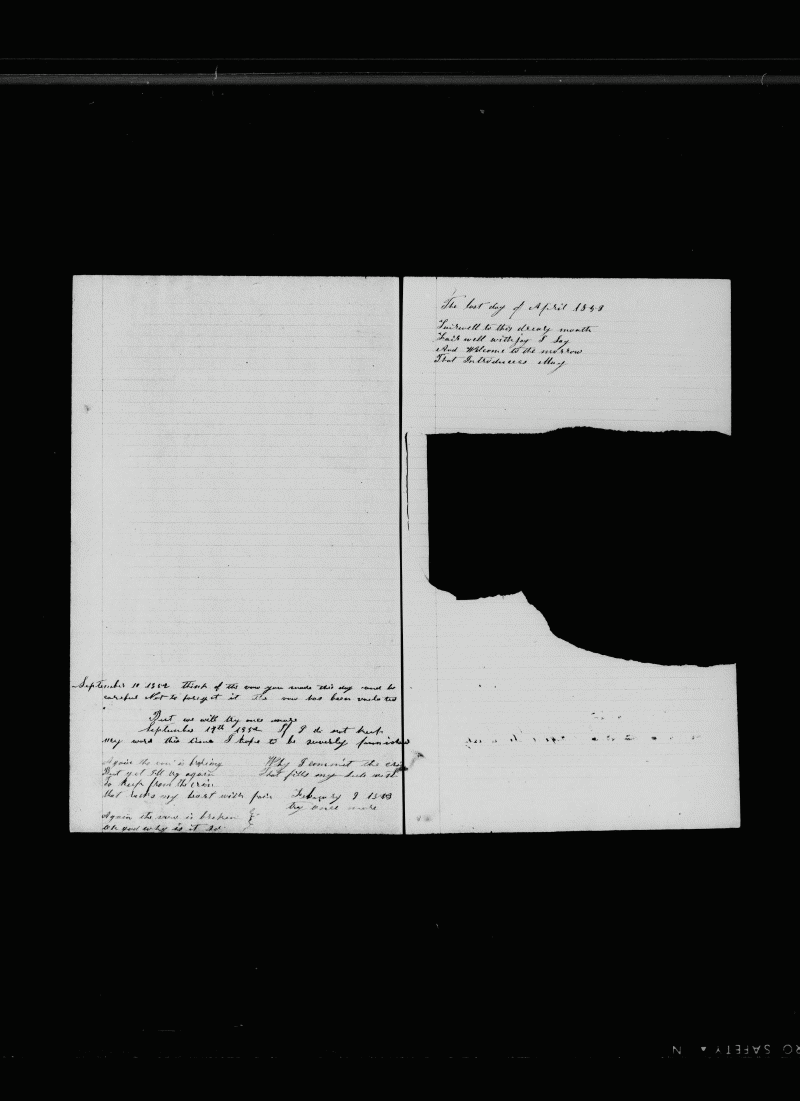 September 10 1852 think of the vow you made this day and be
careful Not to forget it The vow has been
But we will try once more
September 19th 1852 If I do not keep
my word this time I hope to be severely punished
Again the vow is broken
But yet Ill try again
To keep from the crim
that my heart with pain
Again the vow is broken
Oh god why is it so
Why I commit the
That fills my with
February 9 1853
try once more
The last day of April 1859
Fairwell to this dreary month
Fairwell with joy I Say
And Welcome to the morrow
That Introduces May
SAFETY ▲ N